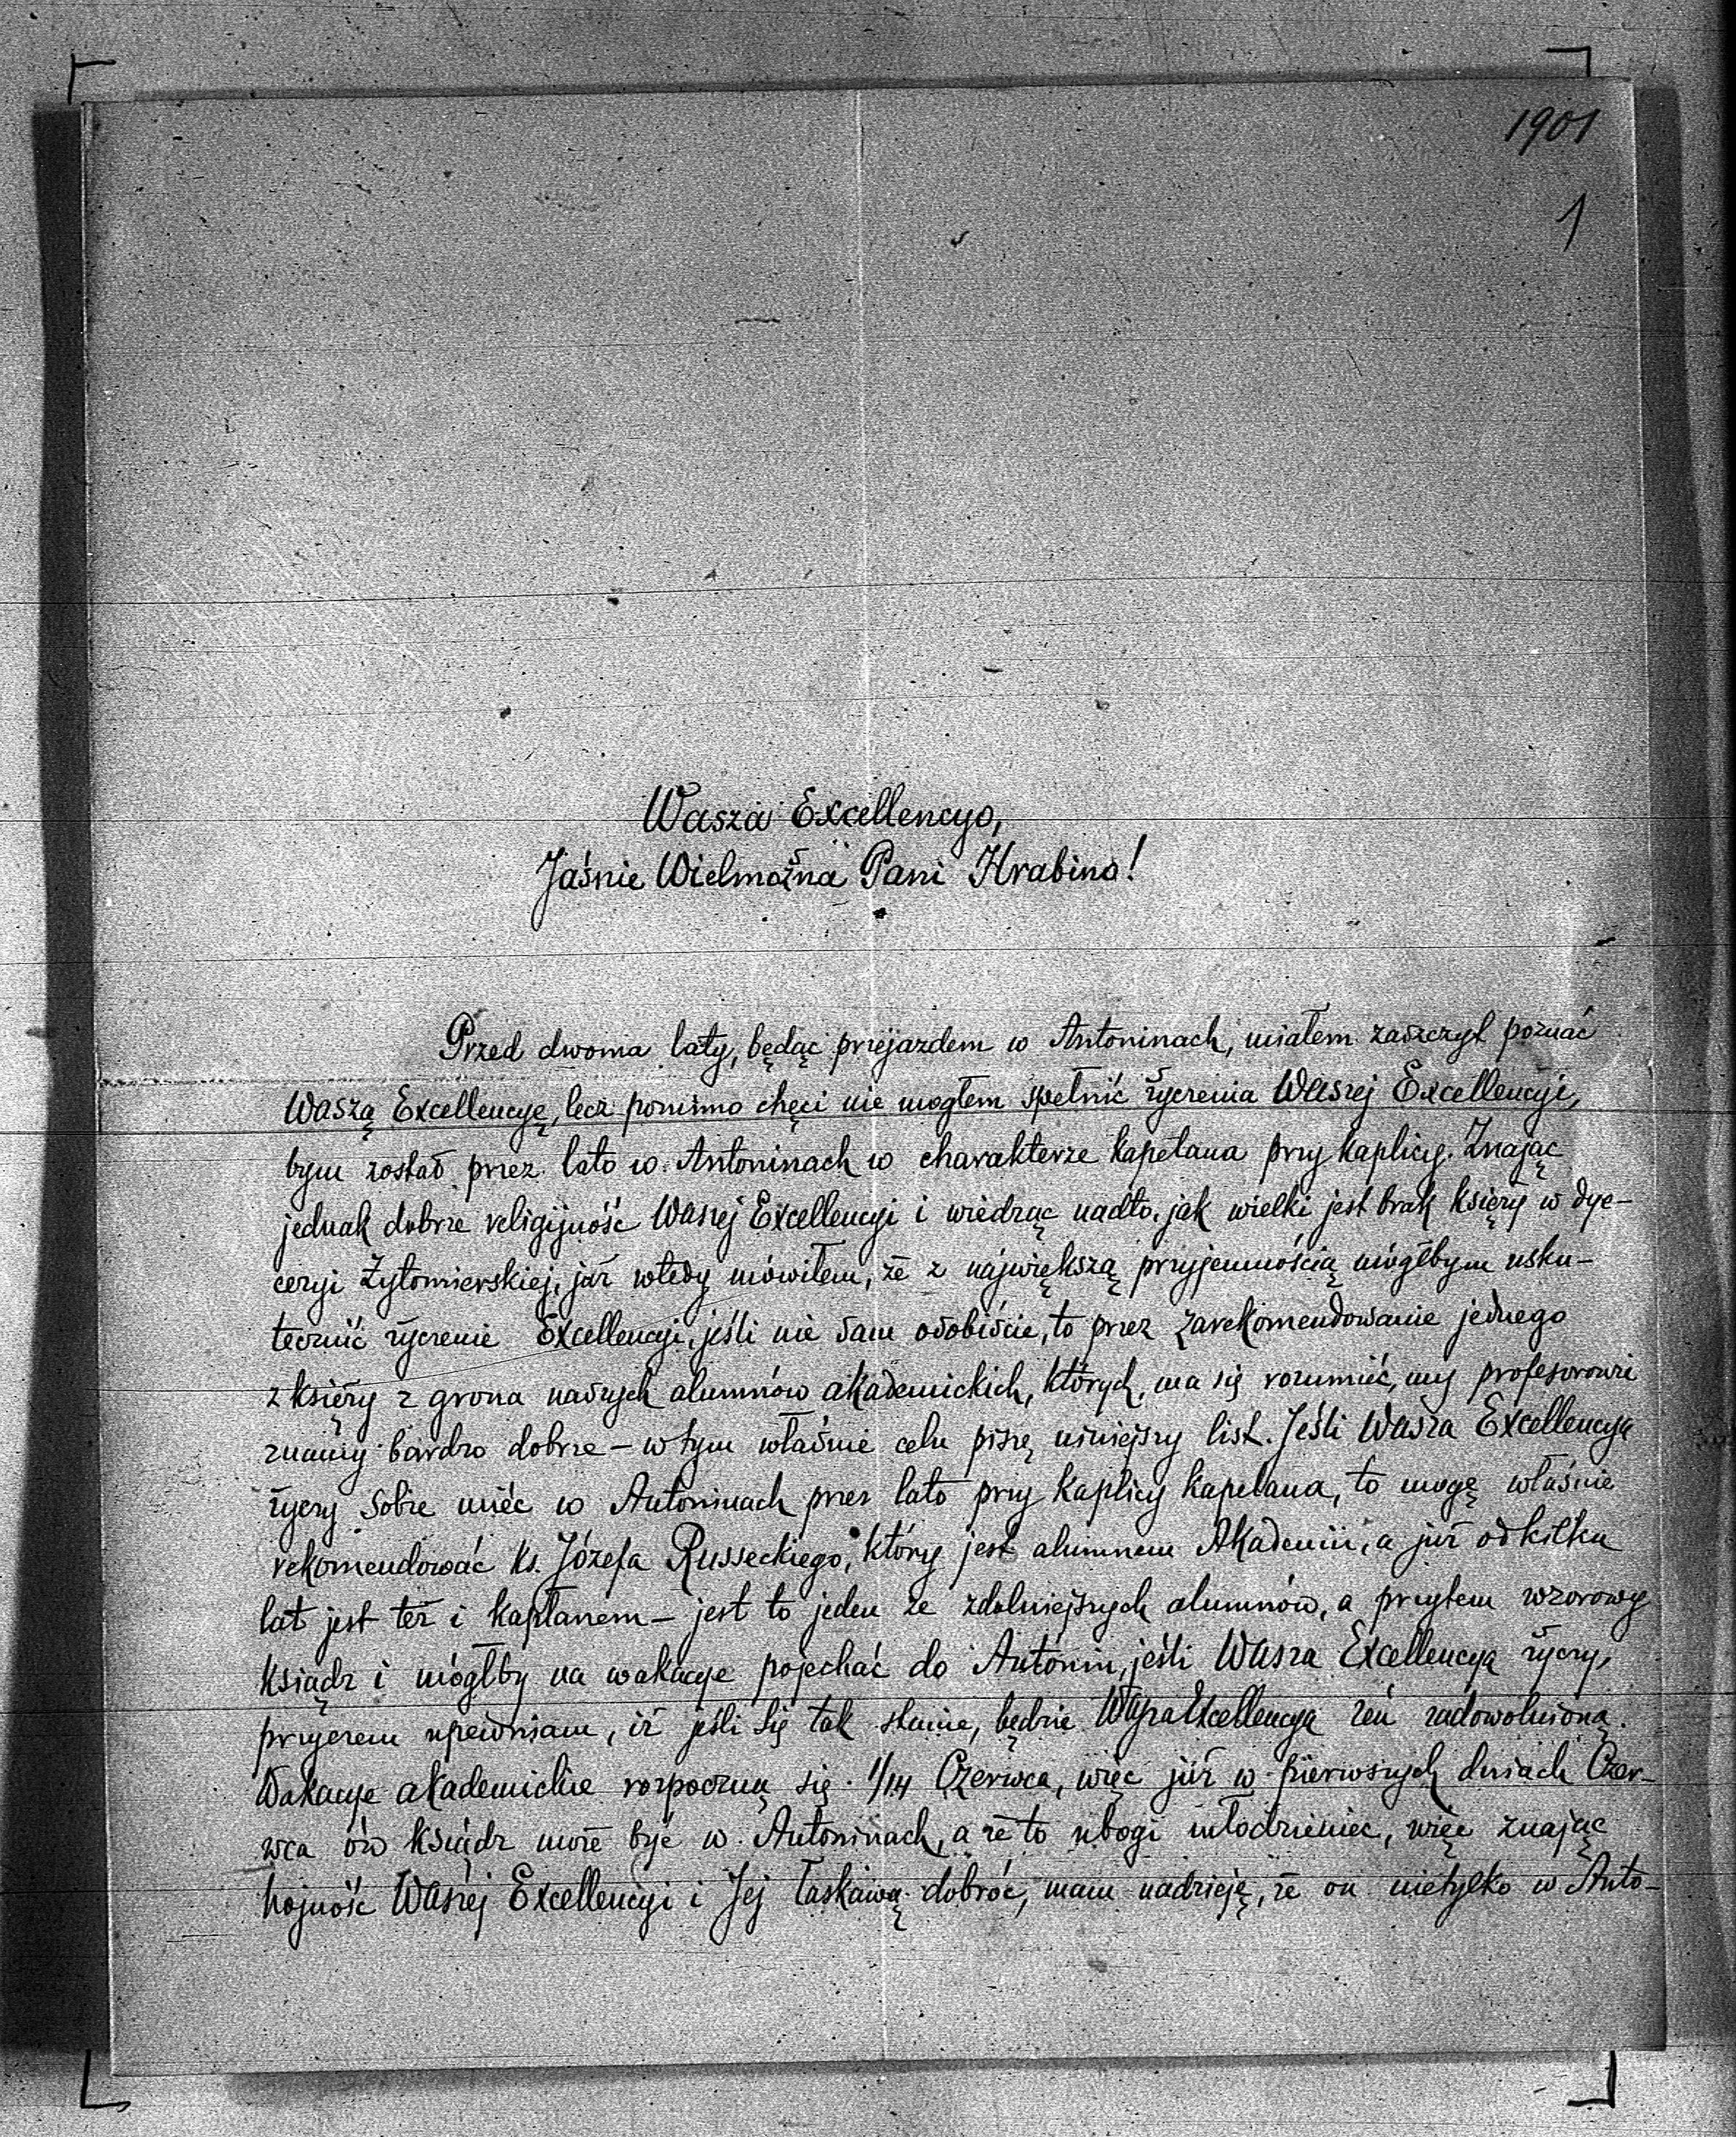 1901
1
Wasza Excellencyo,
Jaśnie Wielmożna Pani Hrabino!
Przed dwoma laty, będąc przejazdem w Antoninach, miałem zaszczyt poznać
Waszą Excellencyę, lecz pomimo chęci nie mogłem spełnić życzenia Waszej Excellencyi,
bym został przez lato w Antoninach w charakterze kapelana przy kaplicy. Znając
jednak dobrze religijność Waszej Excellencyi i wiedząc nadto, jak wielki jest brak księży w dye-
cezyi Żytomierskiej, już wtedy mówiłem, że z największą przyjemnością mógłbym usku-
tecznić życzenie Excellencyi, jeśli nie sam osobiście, to przez zarekomendowanie jednego
z księży z grona naszych alumnów akademickich, których, ma się rozumieć, my profesorowie
znamy bardzo dobrze – w tym właśnie celu piszę niniejszy list. Jeśli Wasza Excellencya
życzy sobie mieć w Antoninach przez lato przy kaplicy kapelana, to mogę właśnie
rekomendować ks. Józefa Russeckiego, który jest alumnem Akademii, a już od kilku
lat jest też i kapłanem – jest to jeden ze zdolniejszych alumnów, a przytem wzorowy
ksiądz i mógłby na wakacye pojechać do Antonin, jeśli Wasza Excellencya życzy,
przyczem upewniam, iż jeśli się tak stanie, będzie Wasza Excellencya zeń zadowolnioną.
Wakacye akademickie rozpoczną się 1/14 Czerwca, więc już w pierwszych dniach Czer-
wca ów ksiądz może być w Antoninach, a że to ubogi młodzieniec, więc znając
hojność Waszej Excellencyi i Jej łaskawą dobroć, mam nadzieję, że on nietylko w Anto-